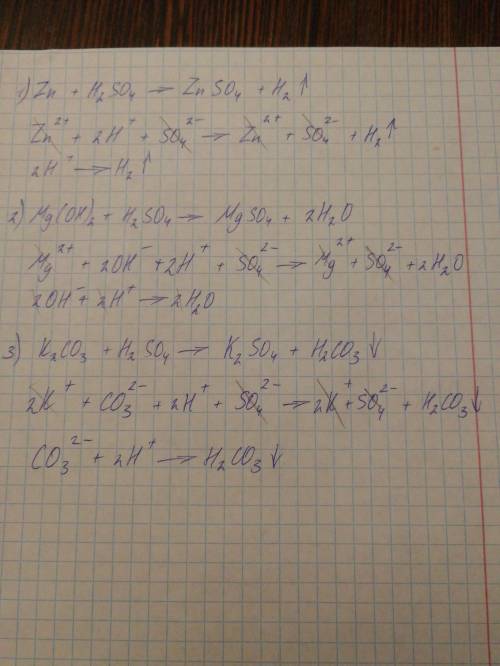 1) Zn + H₂SO₄ → ZnSO₄ + H₂↑
Zn²⁺ + 2H⁺ + SO₄²⁻ → Zn²⁺ + SO₄²⁻ + H₂↑
2H⁺ → H₂↑
2) Mg(OH)₂ + H₂SO₄ → MgSO₄ + 2H₂O
Mg²⁺ + 2OH⁻ + 2H⁺ + SO₄²⁻ → Mg²⁺ + SO₄²⁻ + 2H₂O
2OH⁻ + 2H⁺ → 2H₂O
3) K₂CO₃ + H₂SO₄ → K₂SO₄ + H₂CO₃↓
2K⁺ + CO₃²⁻ + 2H⁺ + SO₄²⁻ → 2K⁺ + SO₄²⁻ + H₂CO₃↓
CO₃²⁻ + 2H⁺ → H₂CO₃↓